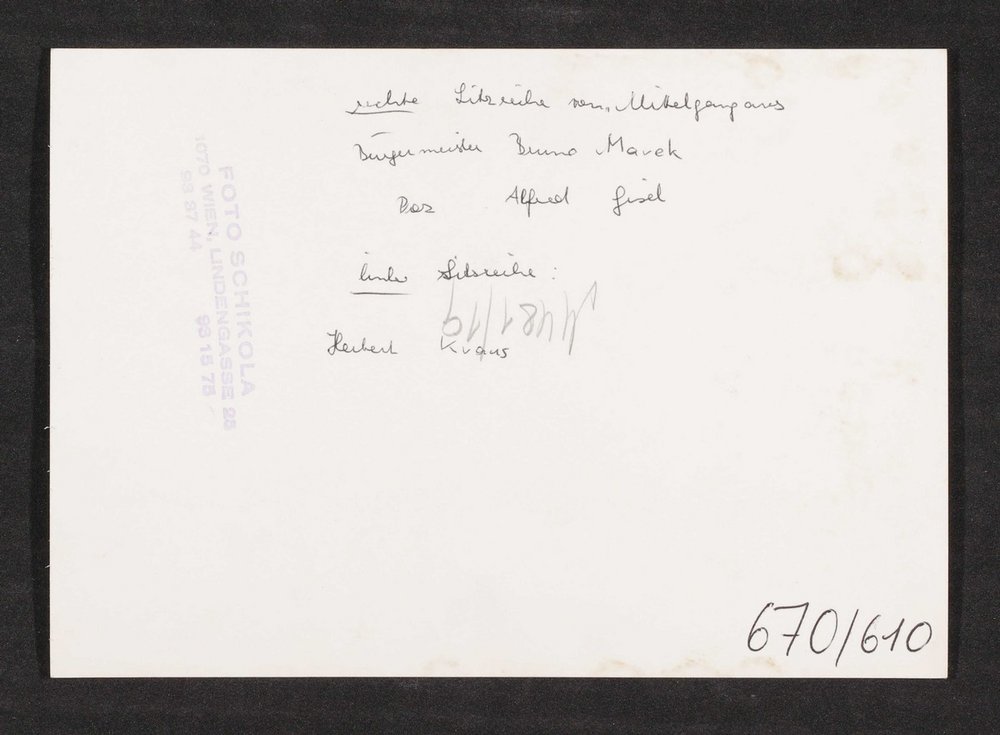 rechte Sitzreihe vom Mittelgang aus
Bürgermeister Bruno Marek
Doz Alfred Gisel
linke Sitzreihe:
Herbert Kraus
11481/19
FOTO SCHIKOLA
1070 WIEN, LINDENGASSE 25
93 27 44 93 15 75
670/610